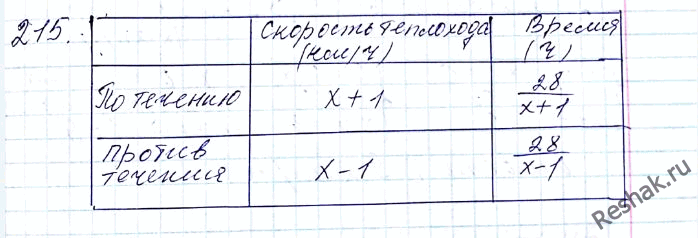 215.
Скорость теплохода (км/ч) Время (ч)
По течению x + 1 28/(x+1)
против течения x - 1 28/(x-1)
Reshak.ru